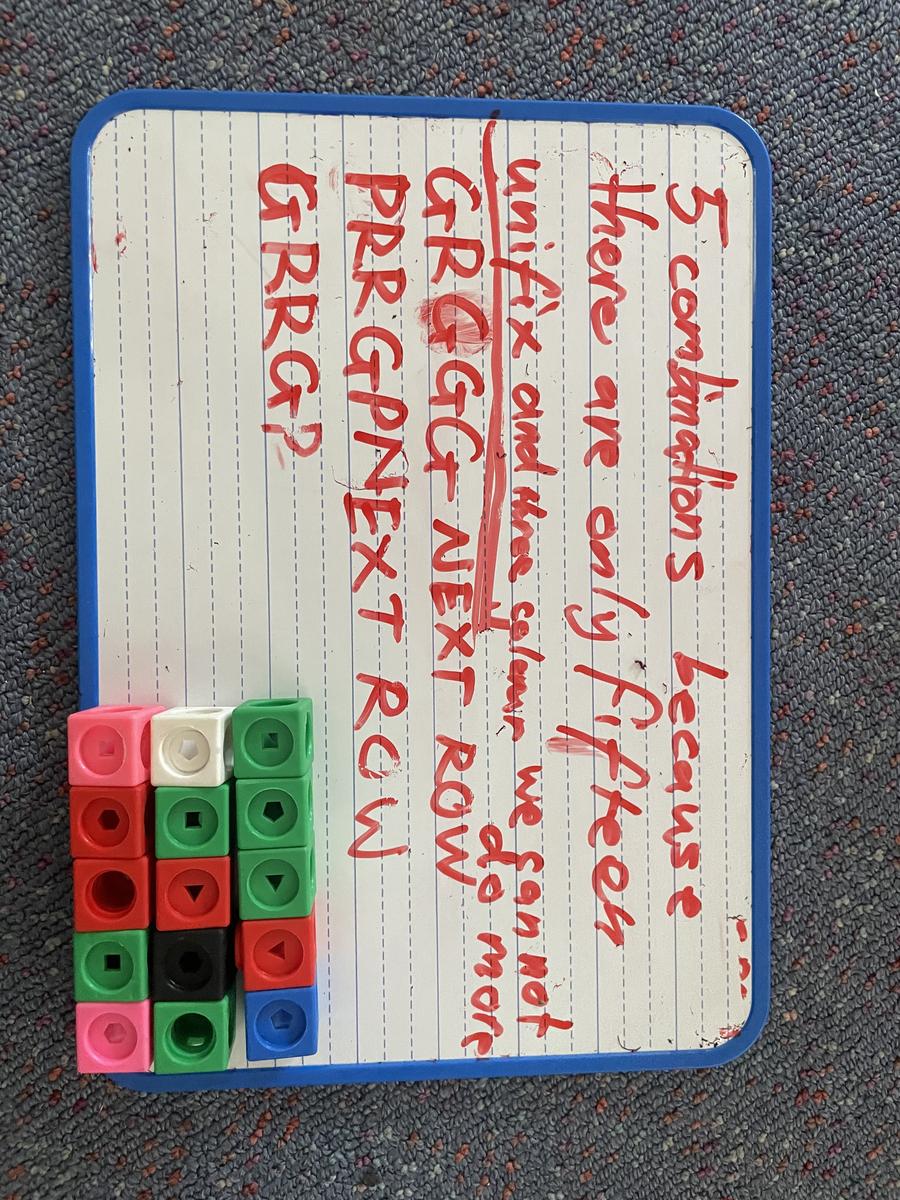 5 combinations because
there are only fifteen
unifix and three colums we can not
do more
GRGGG NEXT ROW
PRRGPNEXT ROW
GRRGP